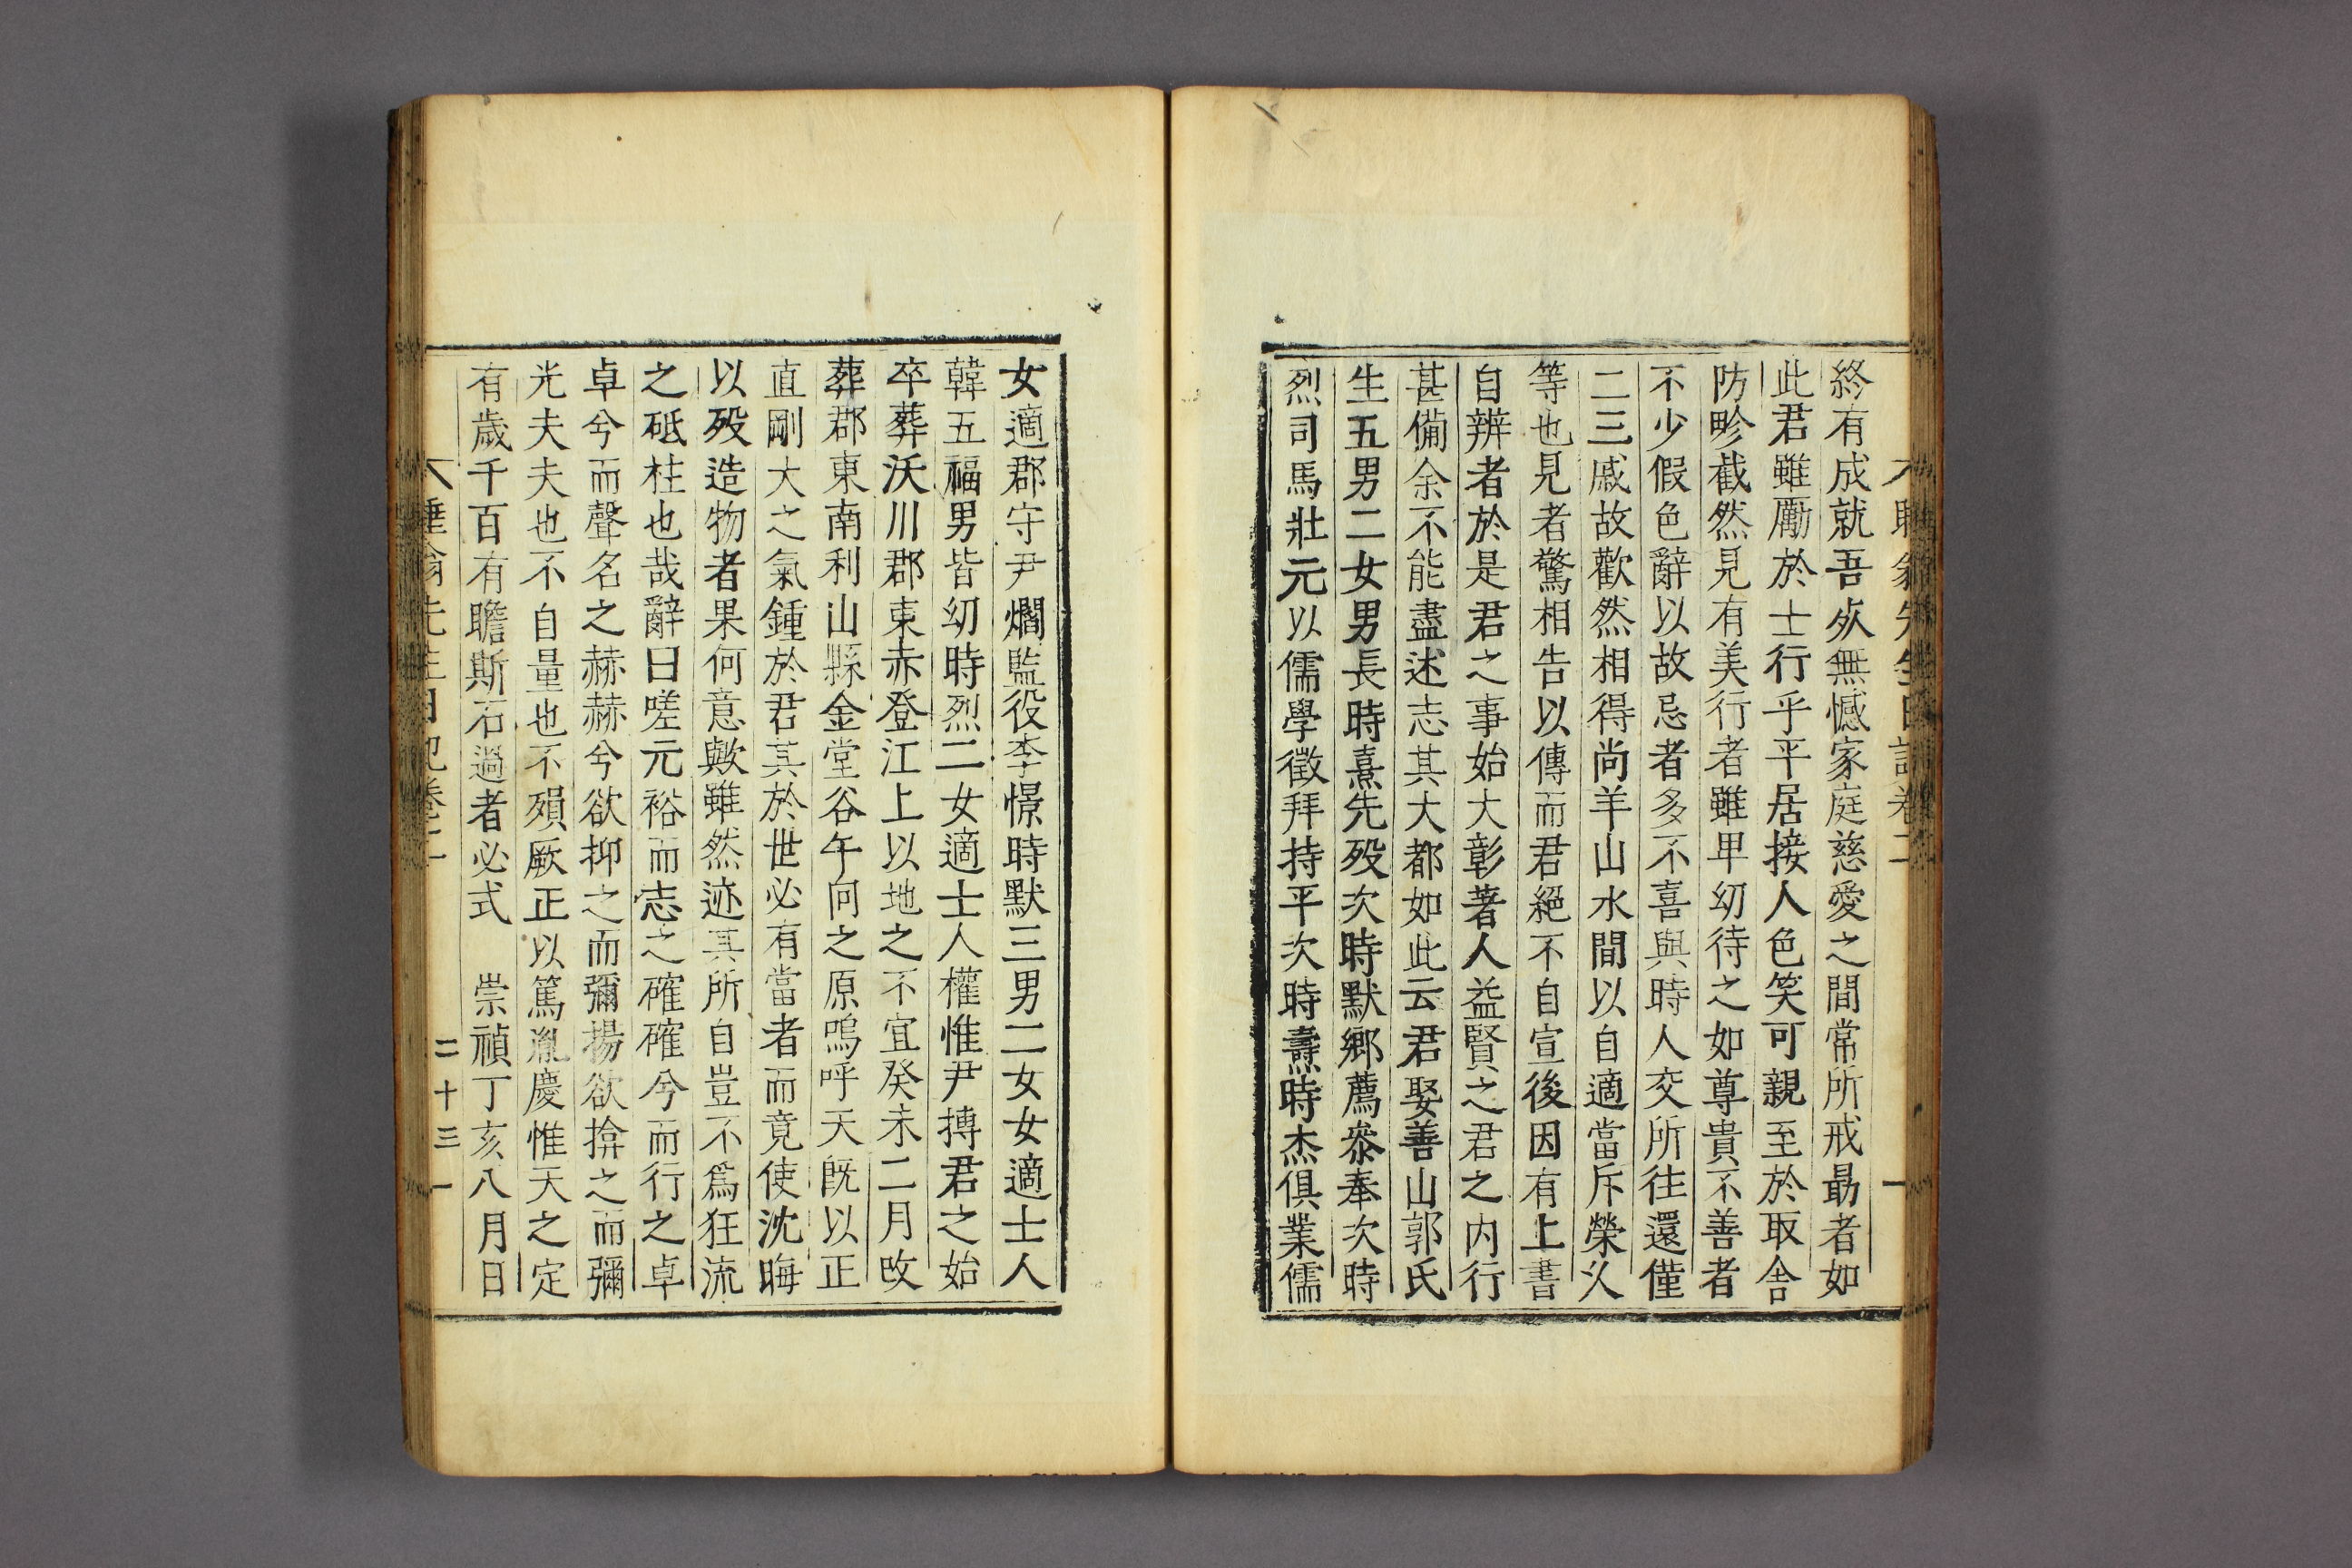 終有成就吾必無憾家庭慈愛之間常所戒勗者如
此君雖勵於士行乎平居接人色笑可親至於取舍
防畛截然見有美行者雖卑幼待之如尊貴不善者
不少假色辭以故忌者多不喜與時人交所往還僅
二三戚故歡然相得尚羊山水間以自適當斥榮乂
等也見者驚相告以傳而君絕不自宣後因有上書
自辨者於是君之事始大彰著人益賢之君之內行
甚備余不能盡述志其大都如此云君娶善山郭氏
生五男二女男長時熹先歿次時默鄉薦叅奉次時
烈司馬壯元以儒學徵拜持平次時燾時杰俱業儒
女適郡守尹爓監役李憬時默三男二女女適士人
韓五福男皆幼時烈二女適士人權惟尹摶君之始
卒葬沃川郡東赤登江上以地之不宜癸未二月改
葬郡東南利山縣金堂谷午向之原嗚呼天旣以正
直剛大之氣鍾於君其於世必有當者而竟使沈晦
以歿造物者果何意歟雖然迹其所自豈不爲狂流
之砥柱也哉辭曰嗟元裕而志之確確兮而行之卓
卓兮而聲名之赫赫兮欲抑之而彌揚欲揜之而彌
光夫夫也不自量也不殞厥正以篤胤慶惟天之定
有歲千百有瞻斯石過者必式 崇禎丁亥八月日
睡翁先生日記卷二
二十三